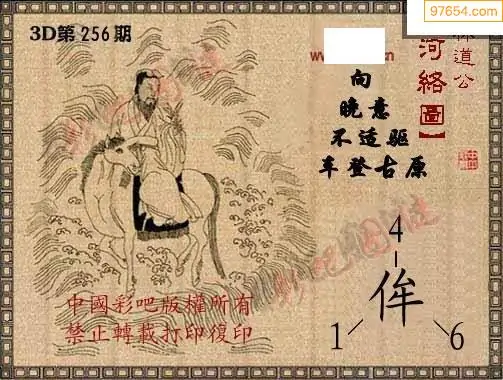 97654.com
3D第256期
林道公
河络圖】
向
晚意
不适驱
车登古原
4
侔
1
6
中國彩吧版權所有
禁止轉載打印復印